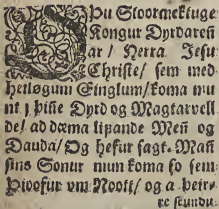 ÞU Stoormektuge
Kongur Dyrdaren̄
ar / Herra Jesu
Christe / sem med
heiløgum Einglum / koma mu
nt / þin̄e Dyrd og Magtarvell
de / ad dæma lifande Men̄ og
Dauda / Og hefur sagt Man̄
sins Sonur mun koma so sem
Þioofur vm Noott / og a þeir-
re stundu